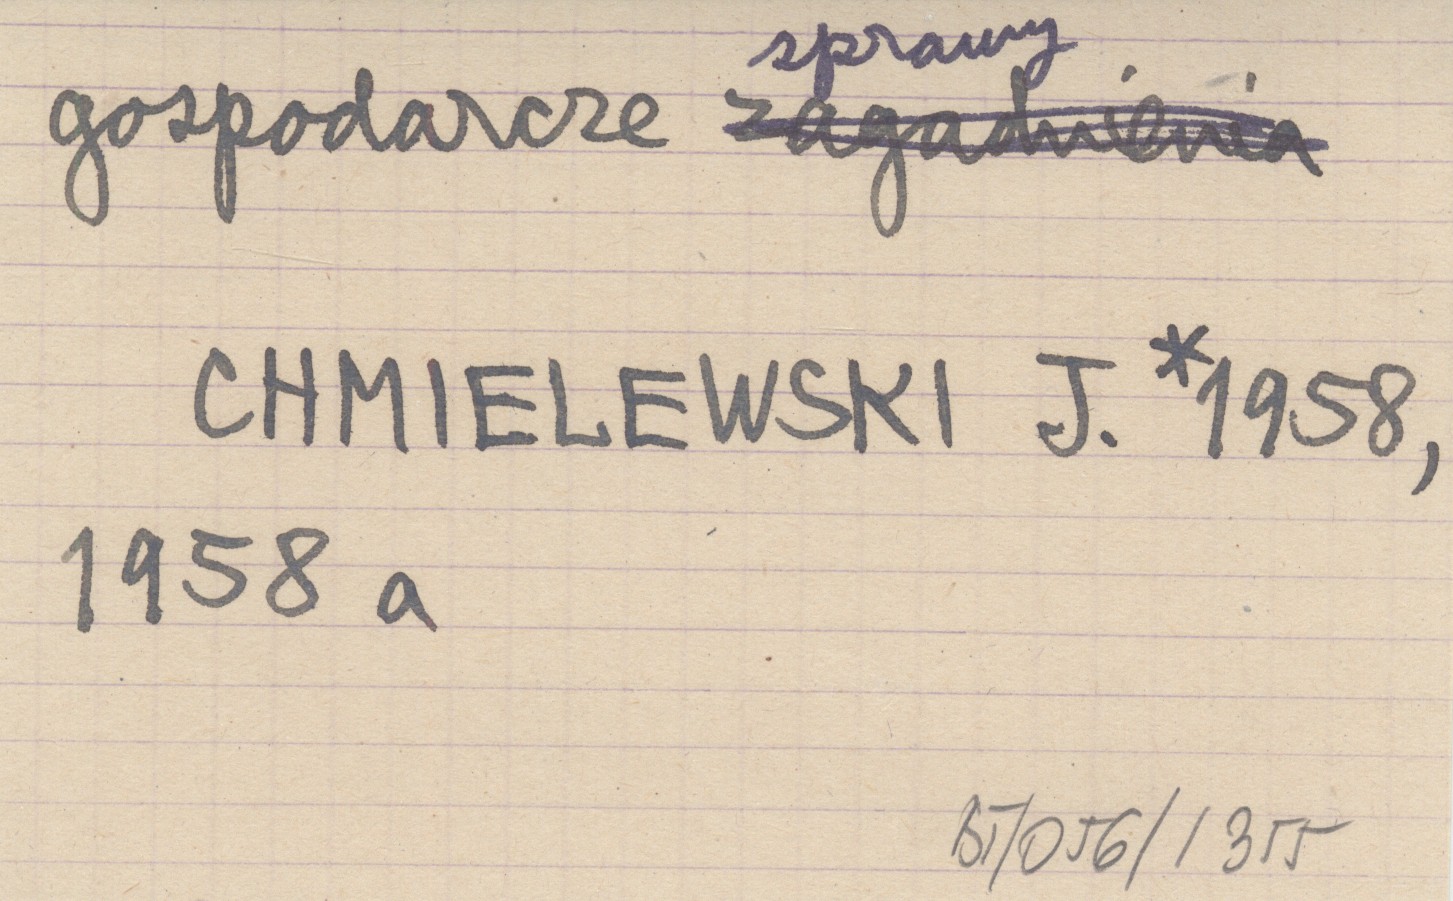 sprawy
gospodarcze zagadnienia
CHMIELEWSKI J. *1958,
1958 a
BT/056/1355